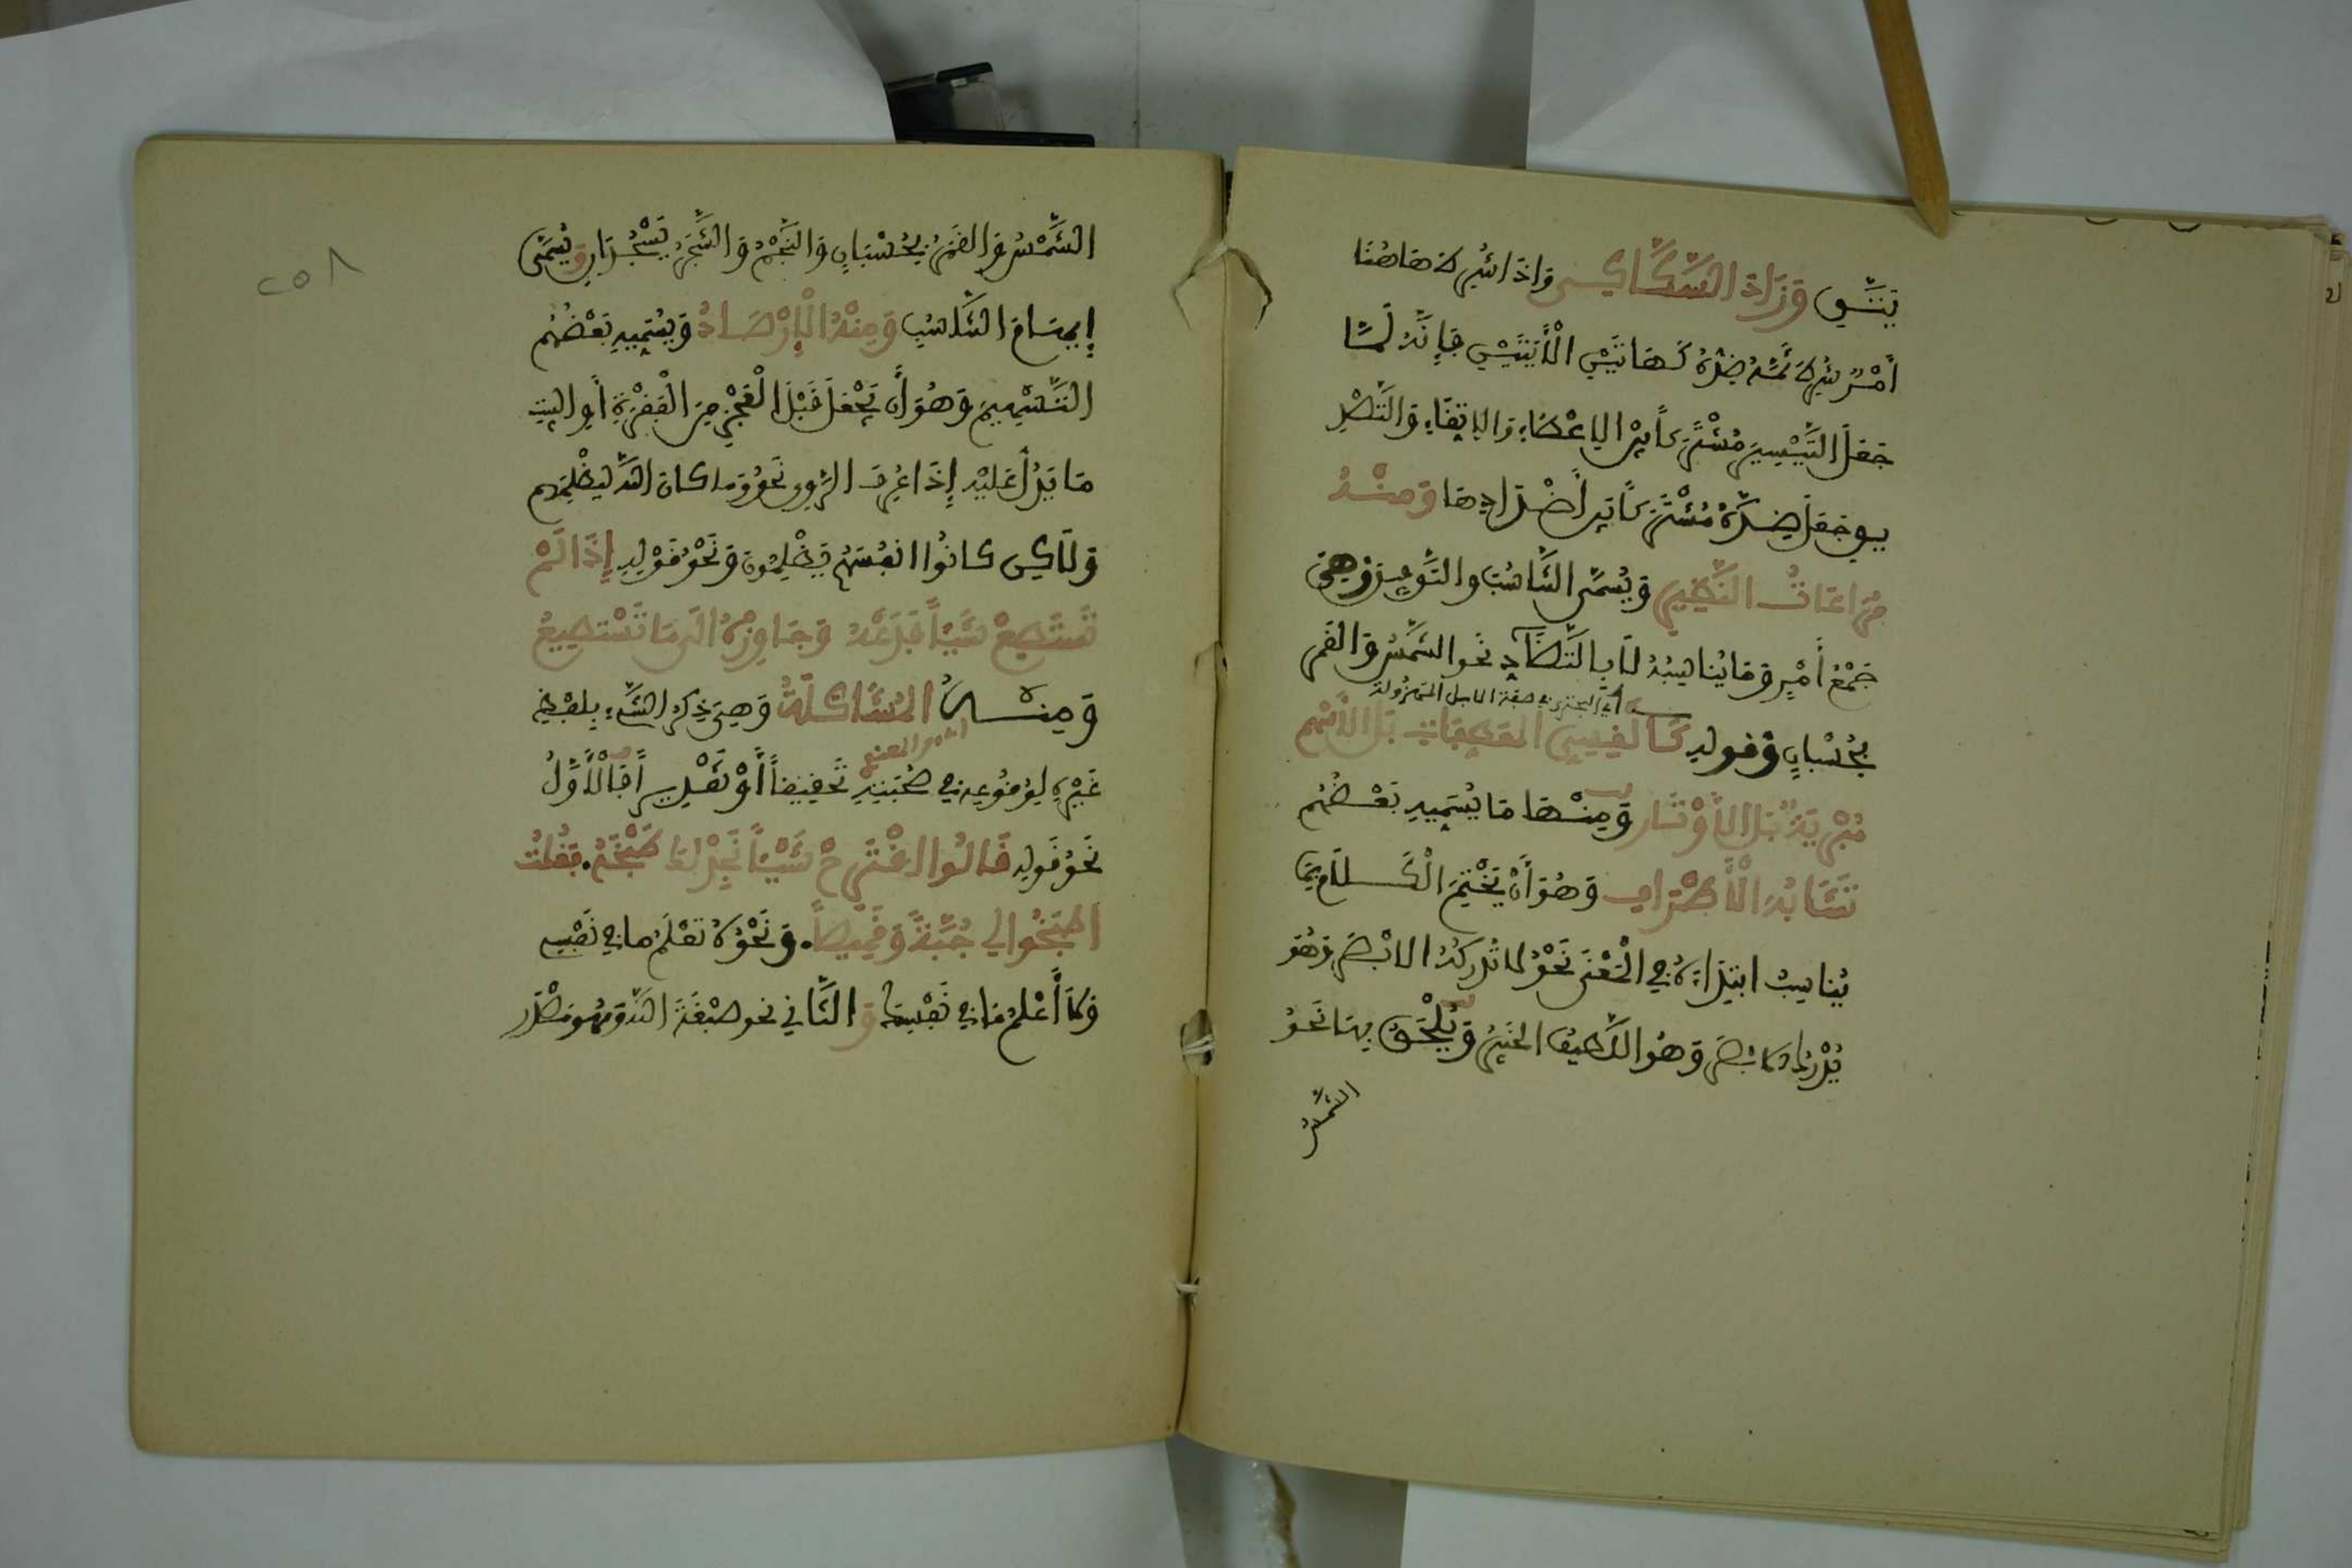 يَتَّقِ وَزَادَ السَّكَّاكِي وَإِذَا شُرِطَ هَاهُنَا
أَمْرٌ شُرِطَ ثَمَّ ضِدُّهُ كَهَاتَيْنِ الْأَيَتَيْنِ فَإِنَّهُ لَمَّا
جَعَلَ التَّيْسِيرَ مُشْتَرَكاً بَيْنَ الإِعْطَاءِ وَالإِتِّقَاءِ وَالتَّصْدِ
يقِ جَعَلَ ضِدَّهُ مُشْتَرَكاً بَيْنَ أَضْدَادِهَا وَمِنْهُ
مُرَاعَاتُ النَّظِيرِ وَيُسَمَّى التَّنَاسُبَ وَالتَّوْفِيقَ وَهِيَ
جَمْعُ أَمْرٍ وَمَا يُنَاسِبُهُ لَا بِالتَّضَادِّ نَحو الشَّمْسُ وَالْقَمَرُ
أي البحتري في صفة الابل المهزولة
بِحُسْبَانٍ وَقولهِ كَالْقِسِيِّ المُعَطَّفَاتِ بَلِ الْأَسْهُمِ
مَبْرِيَّةً بَلِ الْأَوْتَارِ وَمِنْهَا مَا يُسَمِّيهِ بَعْضُهُمْ
تَشَابُهَ الْأَطْرَافِ وَهُوَ أَنْ يُخْتَمَ الْكَلَامُ بِمَا
يُنَاسِبُ ابْتِدَاءَهُ فِي الْمَعْنَى نَحْوُ لَا تُدْرِكُهُ الْأَبْصَارُ وَهُوَ
يُدْرِكُ الْأَبْصَارَ وَهُوَ اللَّطِيفُ الخَبِيرُ وَيُلْحَقُ بِهَا نَحْوُ
الشَّمْسُ
٢٥٨
الشَّمْسُ وَالْقَمَرُ بِحُسْبَانٍ وَالنَّجْمُ وَالشَّجَرُ يَسْجُدَانِ وَيُسَمَّى
إِيهَامَ التَّنَاسُبِ وَمِنْهُ الْإِرْصَادُ وَيُسَمِّيهِ بَعْضُهُم
التَّسْهِيمَ وَهُوَ أَنْ يُجْعَلَ قَبْلَ الْعَجْزِ مِنَ الْفِقْرَةِ أَوِ الْبَيْتِ
مَا يَدُلُّ عَلَيْهِ إِذَا عُرِفَ الرَّوِي نَحْوُ وَمَا كَانَ اللَّه لِيَظْلِمَهُم
وَلَاكِن كَانُوا انفُسَهُم يَظْلِمُونَ وَنَحْوُ قَوْلِهِ إِذَا لَمْ
تَسْتَطِعْ شَيْئاً فَدَعْهُ وَجَاوِزْهُ الَى مَا تَسْتَطِيعُ
وَمِنْهُ الْمُشَاكَلَةُ وَهِيَ ذِكْرُ الشَّيْءِ بِلَفْظِ
غَيْرِهِ لِوُقُوعِهِ فِي صُحْبَتِهِ تَحْقِيقاً أَوْ تَقْدِيراً فَالْأَوَّلُ
نَحْوُ قَوْلِهِ قَالُوا اقْتَرِحْ شَيْئاً نُجِدْ لَكَ طَبْخَهُ. فَقُلْتُ
اطْبَخُوا لِي جُبَّةً وَقَمِيصاً. وَنَحْوُهُ تَعْلَمُ مَا فِي نَفْسِي
وَلَا أَعْلَمُ مَا فِي نَفْسِكَ وَالثَّانِي نحو صِبْغَةَ اللَّه وَهُوَ مَصْدَر